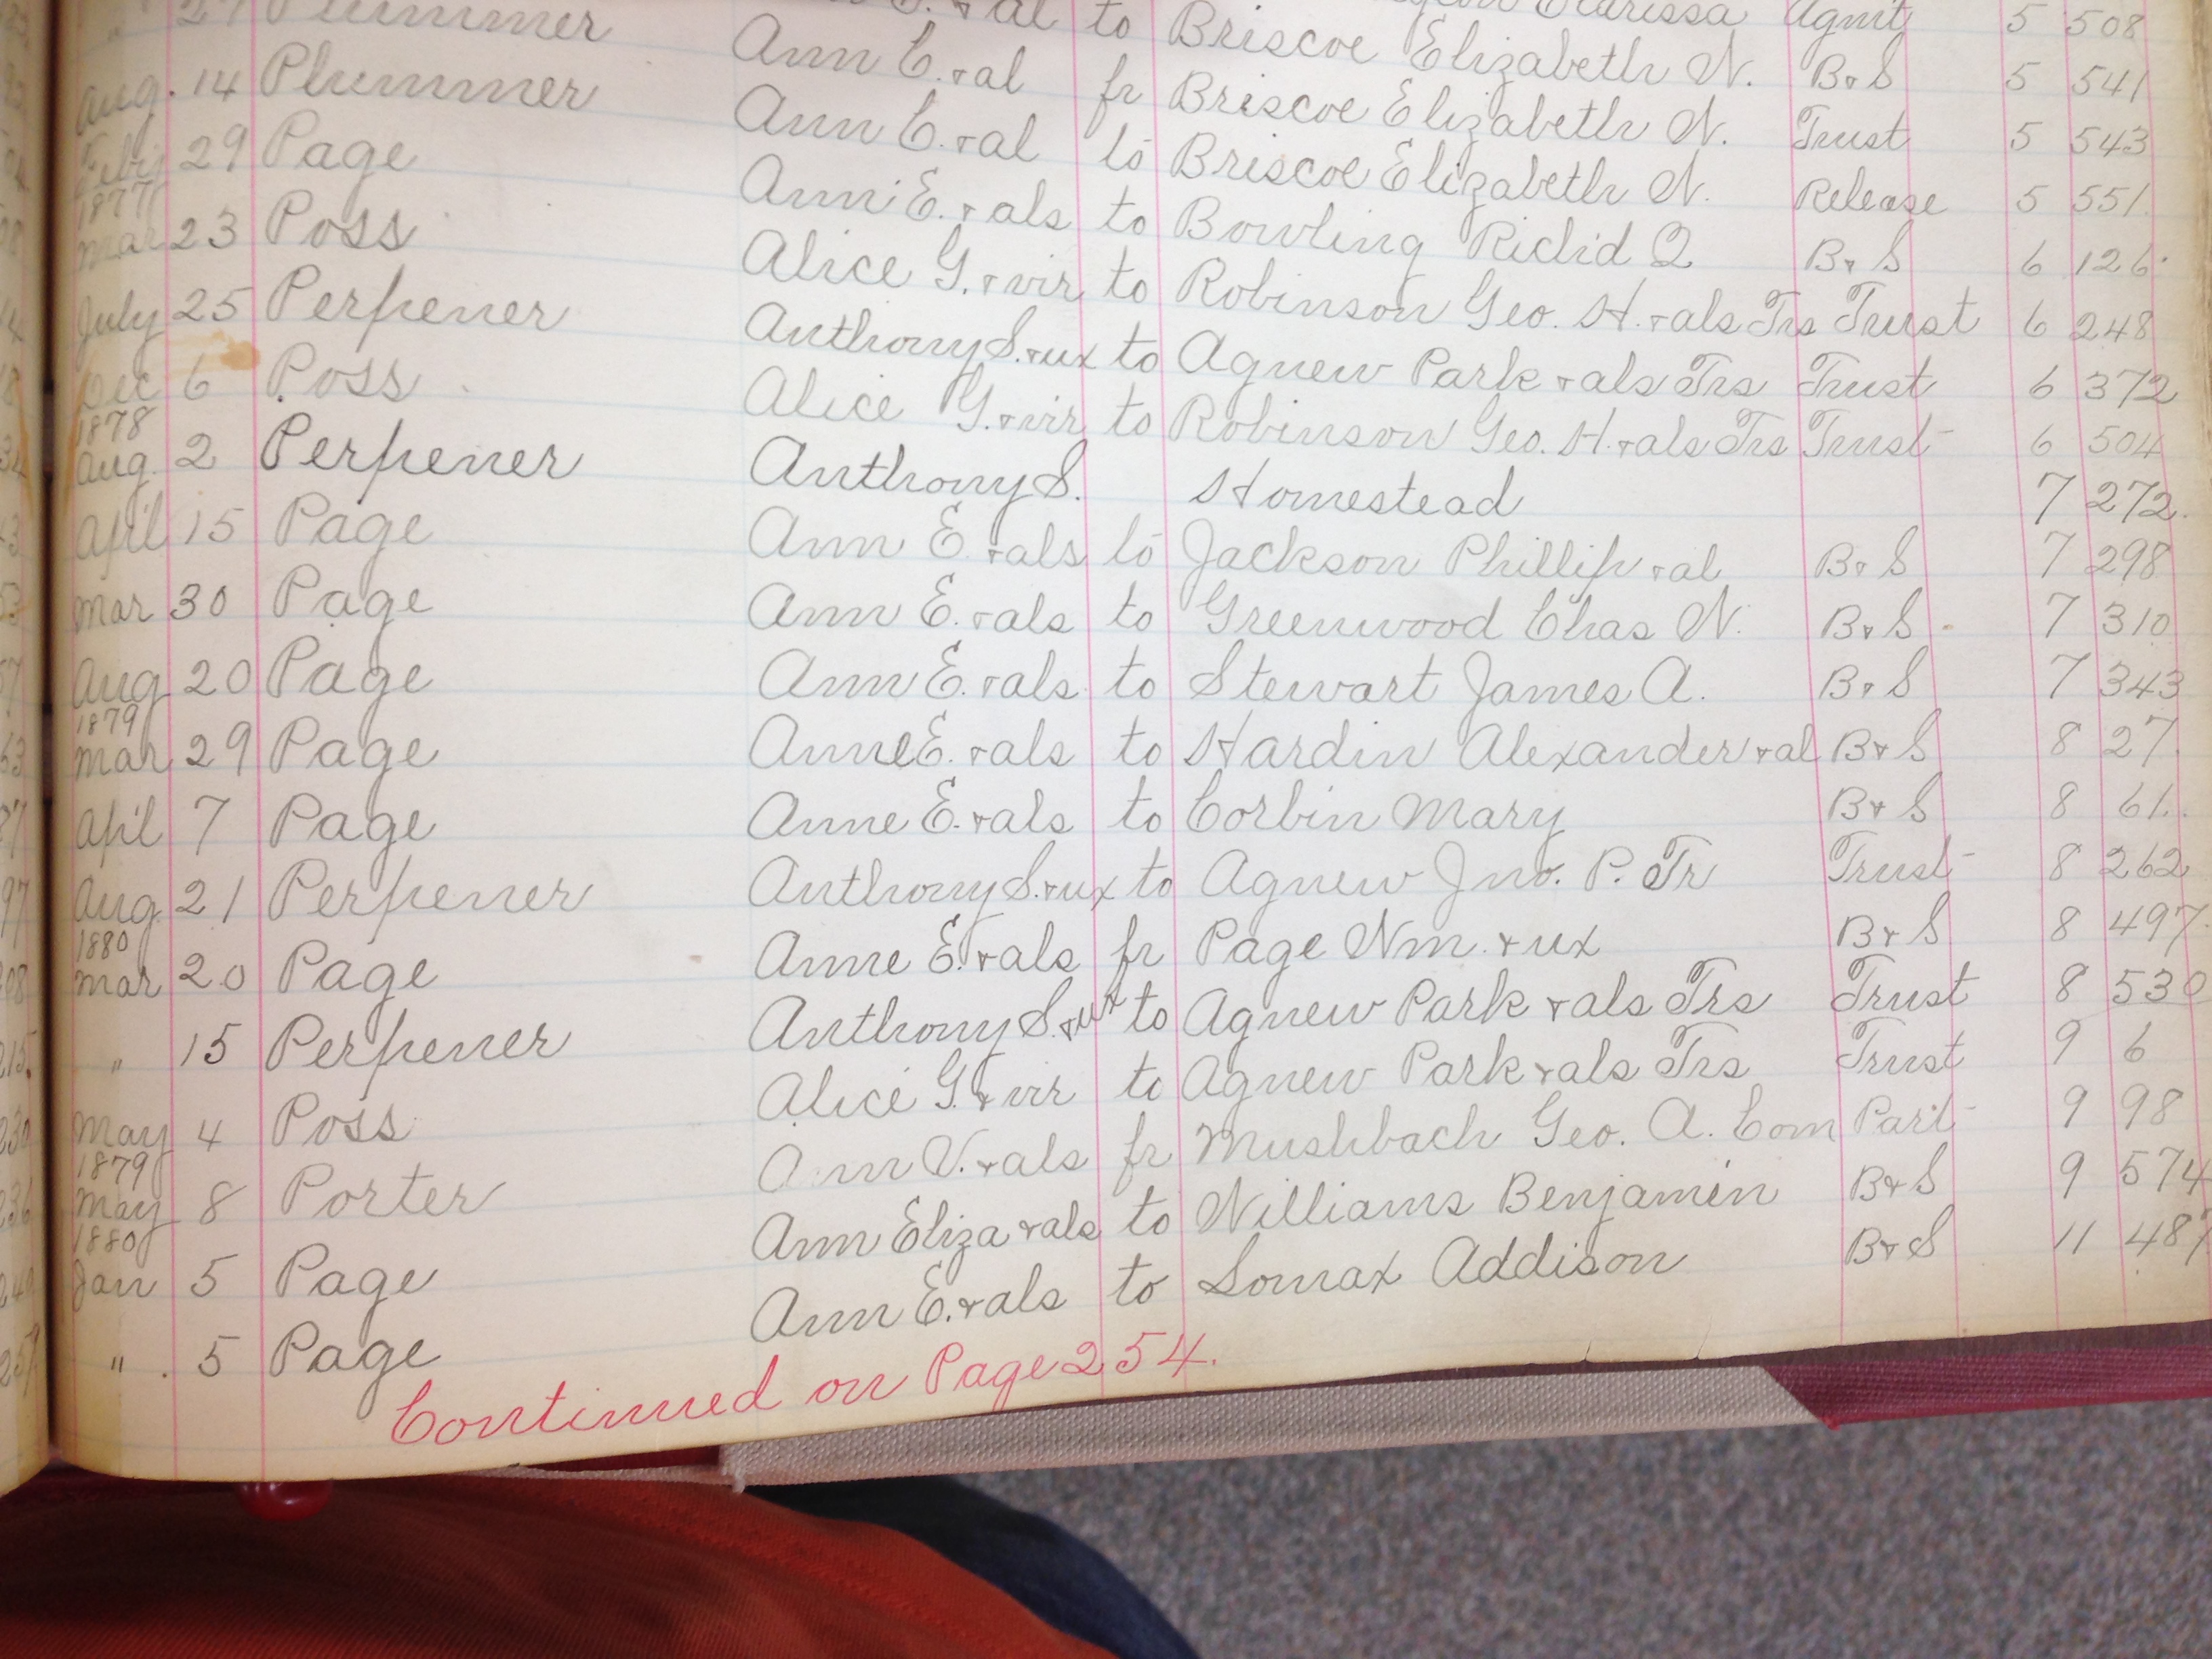 & al to Clarissa Agmt 5 508
Ann C. & al fr Briscoe Elizabeth N. B & S 5 541
" 27 Plummer Ann C. & al to Briscoe Elizabeth N. Trust 5 543
Aug. 14 Plummer Briscoe Elizabeth N. Release 5 551
Feby 29 Page Ann E. & als to Bowling Richd Q B & S 6 126
1877
Mar 23 Poss Alice G. & vir to Robinson Geo. H. & als Trs Trust 6 248
July 25 Perpener Anthony S. & ux to Agnew Park & als Trs Trust 6 372
Dec 6 Poss Alice G. & vir to Robinson Geo. H. & als Trs Trust 6 504
1878
Aug. 2 Perpener Anthony S. Homestead 7 272
April 15 Page Ann E. & als to Jackson Phillip & al B & S 7 298
Mar 30 Page Ann E. & als to Greenwood Chas N. B & S 7 310
Aug 20 Page Ann E. & als to Stewart James A. B & S 7 343
1879
Mar 29 Page Anne E. & als to Hardin Alexander & al B & S 8 27
April 7 Page Anne E. & als to Corbin Mary B & S 8 61
Aug 21 Perpener Anthony S. & ux to Agnew Jno. P. Tr Trust 8 262
1880
Mar 20 Page Anne E. & als fr Page Wm & ux B & S 8 497
" 15 Perpener Anthony S. & ux to Agnew Park & als Trs Trust 8 530
May 4 Poss Alice G. & vir to Agnew Park & als Trs Trust 9 6
1879
May 8 Porter Ann V. & als fr Mushbach Geo. A. Com Part 9 98
1880
Jan 5 Page Ann Eliza & als to Williams Benjamin B & S 9 574
" 5 Page Ann E. & als to Lomax Addison B & S 11 487
Continued on Page 254.